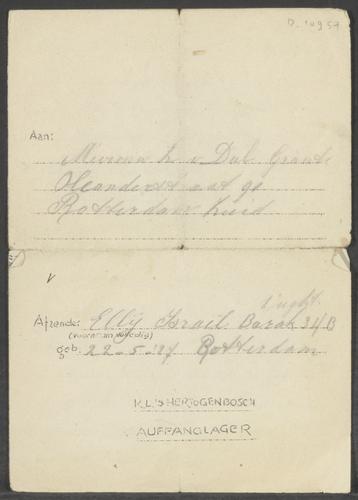 D. 1095
Aan:
Mevrouw
Oleanderstraat 90
Rotterdam Zuid
Vught.
Afzender: Elly Israil. Barak 34B
(voornaam volledig)
geb. 22-5-'27 Rotterdam
K.L. 'S HERTOGENBOSCH
AUFFANGLAGER